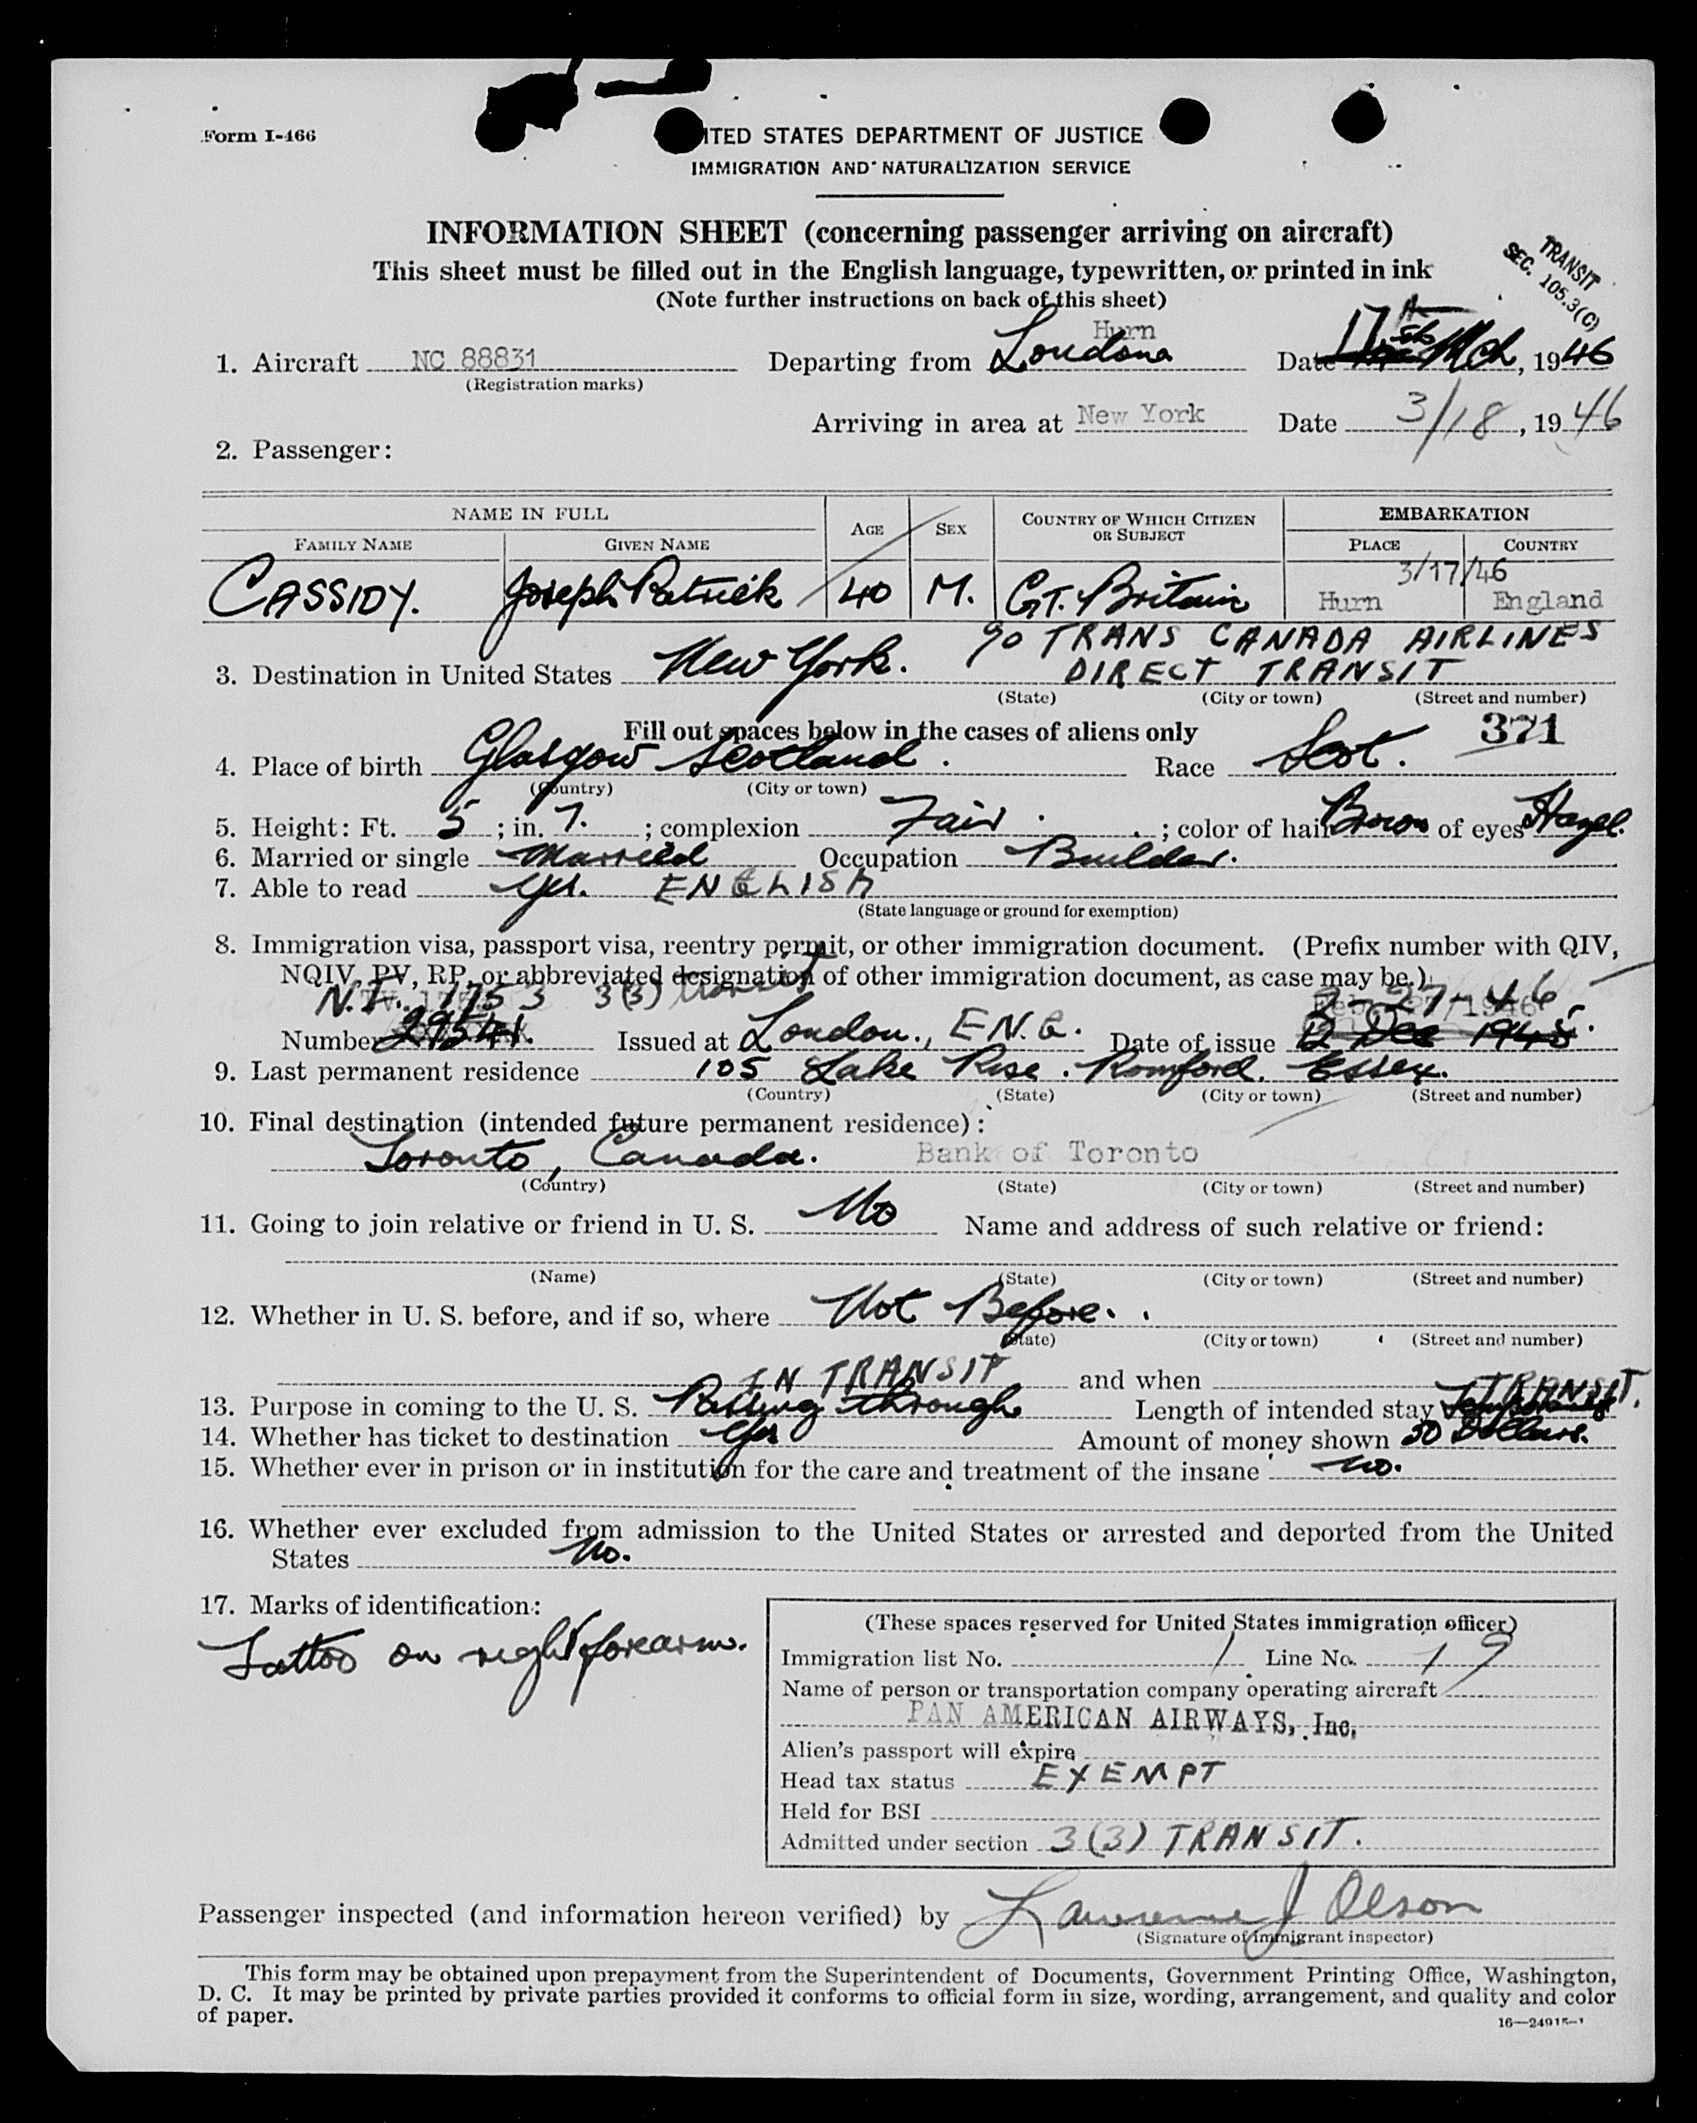 Form I-466
ITED STATES DEPARTMENT OF JUSTICE
IMMIGRATION AND NATURALIZATION SERVICE
INFORMATION SHEET (concerning passenger arriving on aircraft)
This sheet must be filled out in the English language, typewritten, or printed in ink
(Note further instructions on back of this sheet)
TRANSIT
SEC. 105.3(C)
Hurn
1. Aircraft NC 88831 Departing from London Date 17th Mch, 1946
(Registration marks)
Arriving in area at New York Date 3/18, 1946
2. Passenger:
NAME IN FULL AGE SEX COUNTRY OF WHICH CITIZEN OR SUBJECT EMBARKATION
FAMILY NAME GIVEN NAME PLACE COUNTRY
3/17/46
CASSIDY. Joseph Patrick 40 M. GT. Britain Hurn England
c/o TRANS CANADA AIRLINES
3. Destination in United States New York. DIRECT TRANSIT
(State) (City or town) (Street and number)
Fill out spaces below in the cases of aliens only 371
4. Place of birth Glasgow Scotland. Race Scot.
(Country) (City or town)
5. Height: Ft. 5; in. 7.; complexion Fair.; color of hair Brown of eyes Hazel.
6. Married or single Married Occupation Builder.
7. Able to read Yes. ENGLISH
(State language or ground for exemption)
8. Immigration visa, passport visa, reentry permit, or other immigration document. (Prefix number with QIV,
NQIV, PV, RP, or abbreviated designation of other immigration document, as case may be.)
N.I. 1753 3(3) transit 2-27-46
Number 29541. Issued at London., ENG. Date of issue 12 Dec 1945.
9. Last permanent residence 105 Lake Rise. Romford. Essex.
(Country) (State) (City or town) (Street and number)
10. Final destination (intended future permanent residence):
Toronto, Canada. Bank of Toronto
(Country) (State) (City or town) (Street and number)
11. Going to join relative or friend in U. S. No Name and address of such relative or friend:
(Name) (State) (City or town) (Street and number)
12. Whether in U. S. before, and if so, where Not Before.
(State) (City or town) (Street and number)
IN TRANSIT and when
13. Purpose in coming to the U. S. Passing through Length of intended stay TRANSIT.
14. Whether has ticket to destination Yes Amount of money shown 50 Dollars.
15. Whether ever in prison or in institution for the care and treatment of the insane No.
16. Whether ever excluded from admission to the United States or arrested and deported from the United
States No.
17. Marks of identification:
Tattoo on right forearm.
(These spaces reserved for United States immigration officer)
Immigration list No. 1 Line No. 19
Name of person or transportation company operating aircraft
PAN AMERICAN AIRWAYS, Inc.
Alien's passport will expire
Head tax status EXEMPT
Held for BSI
Admitted under section 3(3) TRANSIT.
Passenger inspected (and information hereon verified) by Lawrence J Olson
(Signature of immigrant inspector)
This form may be obtained upon prepayment from the Superintendent of Documents, Government Printing Office, Washington,
D. C. It may be printed by private parties provided it conforms to official form in size, wording, arrangement, and quality and color
of paper.
16—24915-1